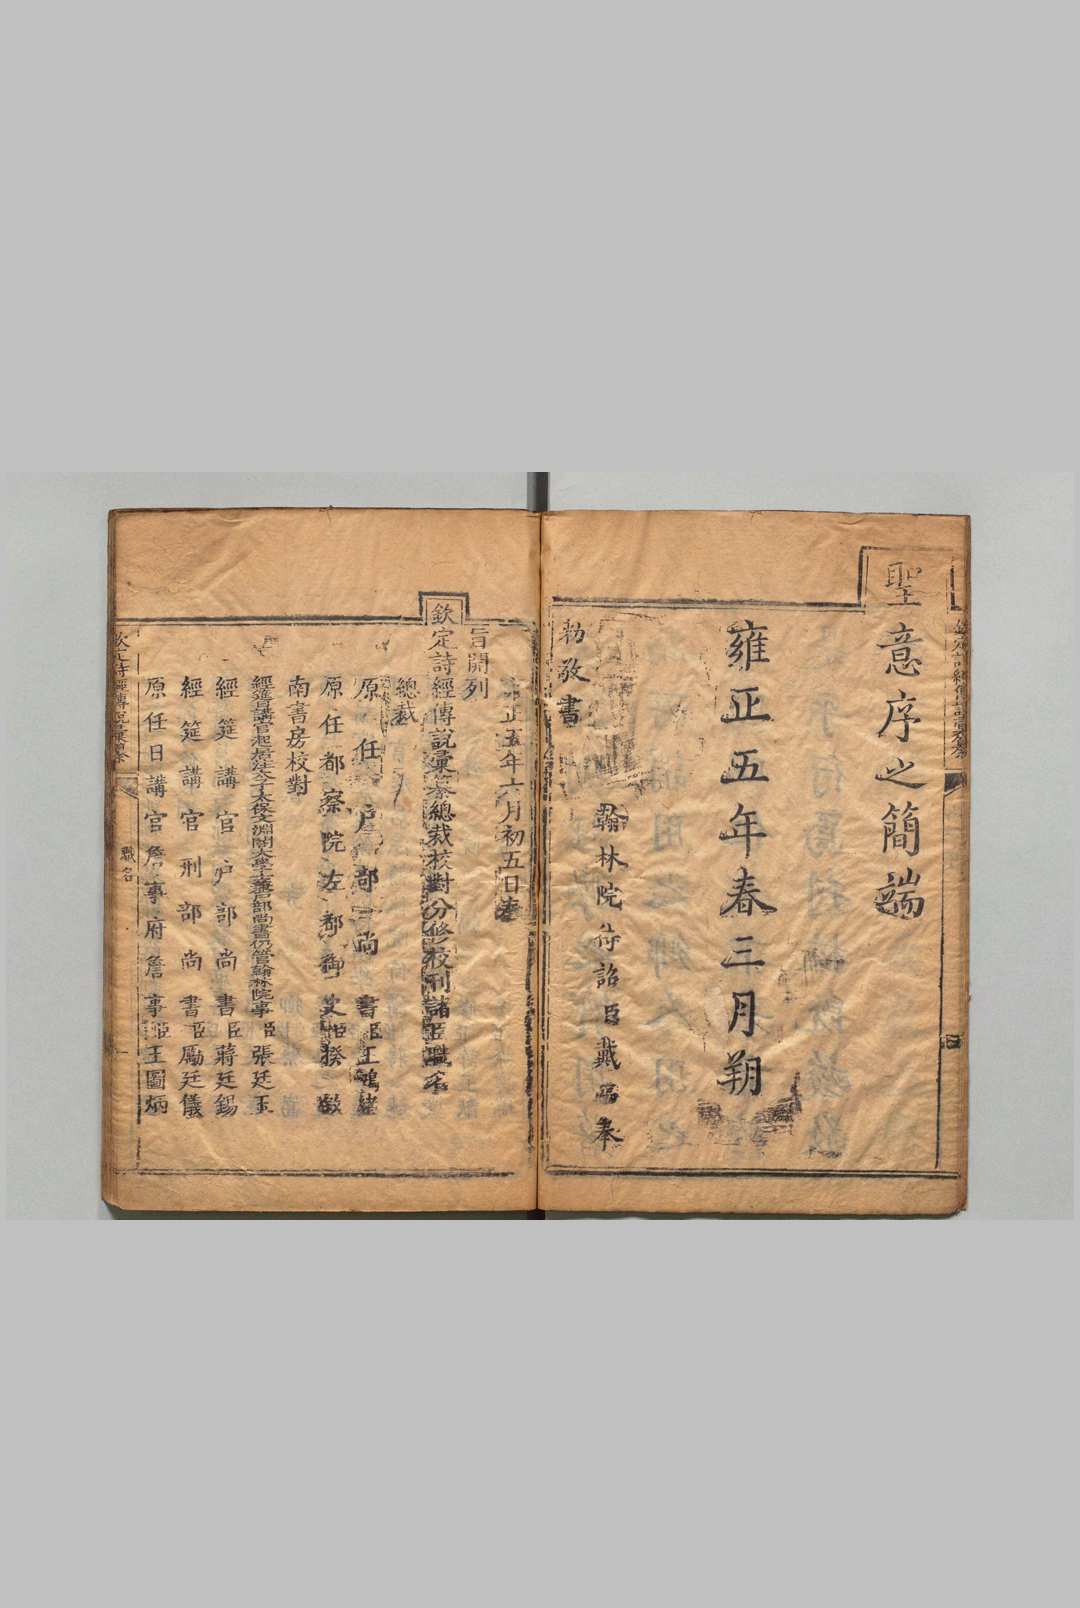 聖意序之簡端
雍正五年春三月朔
翰林院待詔臣戴臨奉
勅敬書
雍正五年六月初五日奉
旨開列
欽定詩經傳說彙纂總裁校對分修校刊諸臣職名
總裁
原任戶部尚書臣王鴻緒
原任都察院左都御史臣揆敘
南書房校對
經筵日講官起居注太子太保文淵閣大學士兼吏部尚書仍管翰林院事臣張廷玉
經筵講官戶部尚書臣蔣廷錫
經筵講官刑部尚書臣勵廷儀
原任日講官詹事府詹事臣王圖炳
欽定詩經傳說彙纂
職名
一